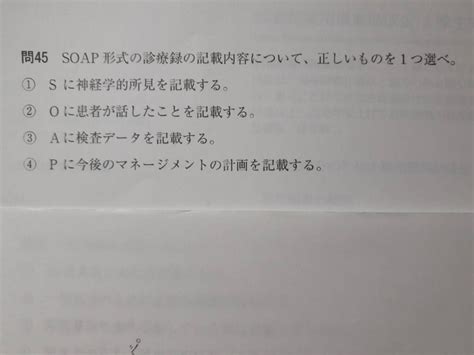 問45 SOAP 形式の診療録の記載内容について、正しいものを1つ選べ。
① Sに神経学的所見を記載する。
② Oに患者が話したことを記載する。
③ Aに検査データを記載する。
④ Pに今後のマネージメントの計画を記載する。